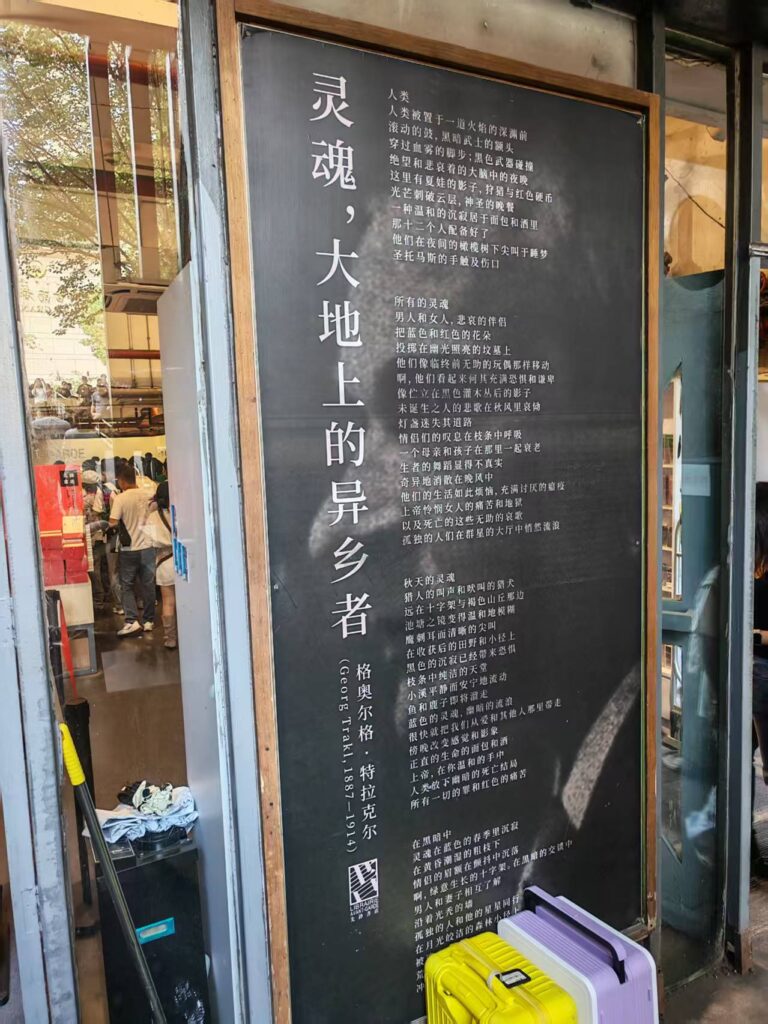 灵魂，大地上的异乡者
格奥尔格·特拉克尔
(Georg Trakl, 1887—1914)
LIBRAIRIE
AVANT-GARDE
先锋书店
人类
人类被置于一道火焰的深渊前
滚动的鼓，黑暗武士的额头
穿过血雾的脚步；黑色武器碰撞
绝望和悲哀着的大脑中的夜晚
这里有夏娃的影子，狩猎与红色硬币
光芒刺破云层，神圣的晚餐
一种温和的沉寂居于面包和酒里
那十二个人配备好了
他们在夜间的橄榄树下尖叫于睡梦
圣托马斯的手触及伤口
所有的灵魂
男人和女人，悲哀的伴侣
把蓝色和红色的花朵
投掷在幽光照亮的坟墓上
他们像临终前无助的玩偶那样移动
啊，他们看起来何其充满恐惧和谦卑
像伫立在黑色灌木丛后的影子
未诞生之人的悲歌在秋风里哀恸
灯盏迷失其道路
情侣们的叹息在枝条中呼吸
一个母亲和孩子在那里一起衰老
生者的舞蹈显得不真实
奇异地消散在晚风中
他们的生活如此烦恼，充满讨厌的瘟疫
上帝怜悯女人的痛苦和地狱
以及死亡的这些无助的哀歌
孤独的人们在群星的大厅中悄然流浪
秋天的灵魂
猎人的叫声和吠叫的猎犬
远在十字架与褐色山丘那边
池塘之镜变得温和地模糊
鹰刺耳而清晰的尖叫
在收获后的田野和小径上
黑色的沉寂已经带来恐惧
枝条中纯洁的天堂
小溪平静而安宁地流动
鱼和鹿子即将溜走
蓝色的灵魂，幽暗的流浪
很快就把我们从爱和其他人那里带走
傍晚改变感觉和影象
正直的生命的面包和酒
上帝，在你温和的手中
人类放下幽暗的死亡结局
所有一切的罪和红色的痛苦
在黑暗中
灵魂在蓝色的春季里沉寂
在黄昏潮湿的粗枝下
情侣的眉额在颤抖中沉落
啊，绿意生长的十字架，在黑暗的交谈中
男人和妻子相互了解
沿着光秃的墙
孤独的人和他的星星同行
在月光皎洁的森林小径上